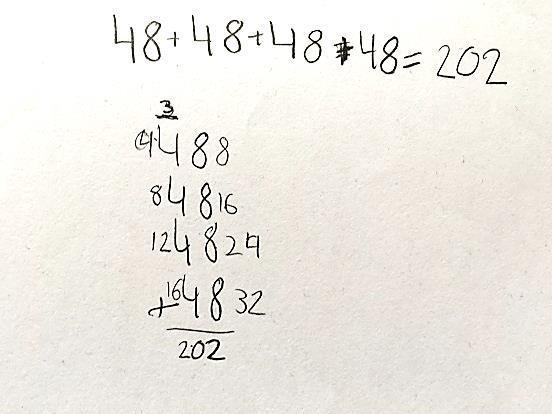 48+48+48+48=202
3
4 48 8
8 48 16
12 48 24
+16 48 32
202